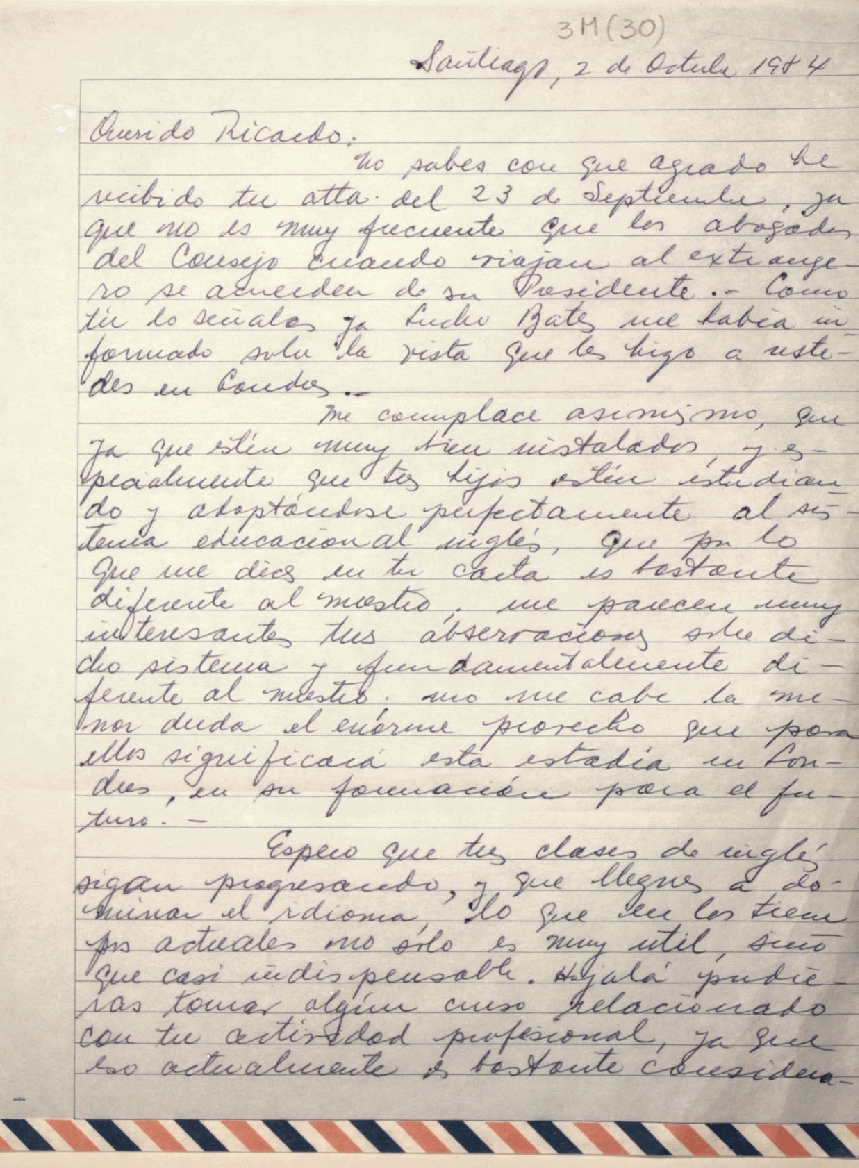 3M(30)
Santiago, 2 de Octubre 1984
Querido Ricardo:
No sabes con que agrado he
recibido tu atta. del 23 de Septiembre, ya
que no es muy frecuente que los abogados
del Consejo cuando viajan al extrange-
ro se acuerden de su Presidente.- Como
tú lo señalas ya Lucho Bates me había in
formado sobre la vista que les hizo a uste-
des en Londres.-
Me complace asimismo, que
ya que estén muy bien instalados, y es-
pecialmente que tus hijos estén estudian
do y adaptándose perfectamente al sis-
tema educacional inglés, que por lo
que me dices en tu carta es bastante
diferente al nuestro; me parecen muy
interesantes tus observaciones sobre di-
cho sistema y fundamentalmente di-
ferente al nuestro; no me cabe la me-
nor duda el enorme provecho que para
ellos significará esta estadía en Lon-
dres, en su formación para el fu-
turo.-
Espero que tus clases de inglés
sigan progresando, y que llegues a do-
minar el idioma, lo que en los tiem
pos actuales no sólo es muy útil, sino
que casi indispensable. Ojalá pudie-
ras tomar algún curso relacionado
con tu actividad profesional, ya que
eso actualmente es bastante considera-